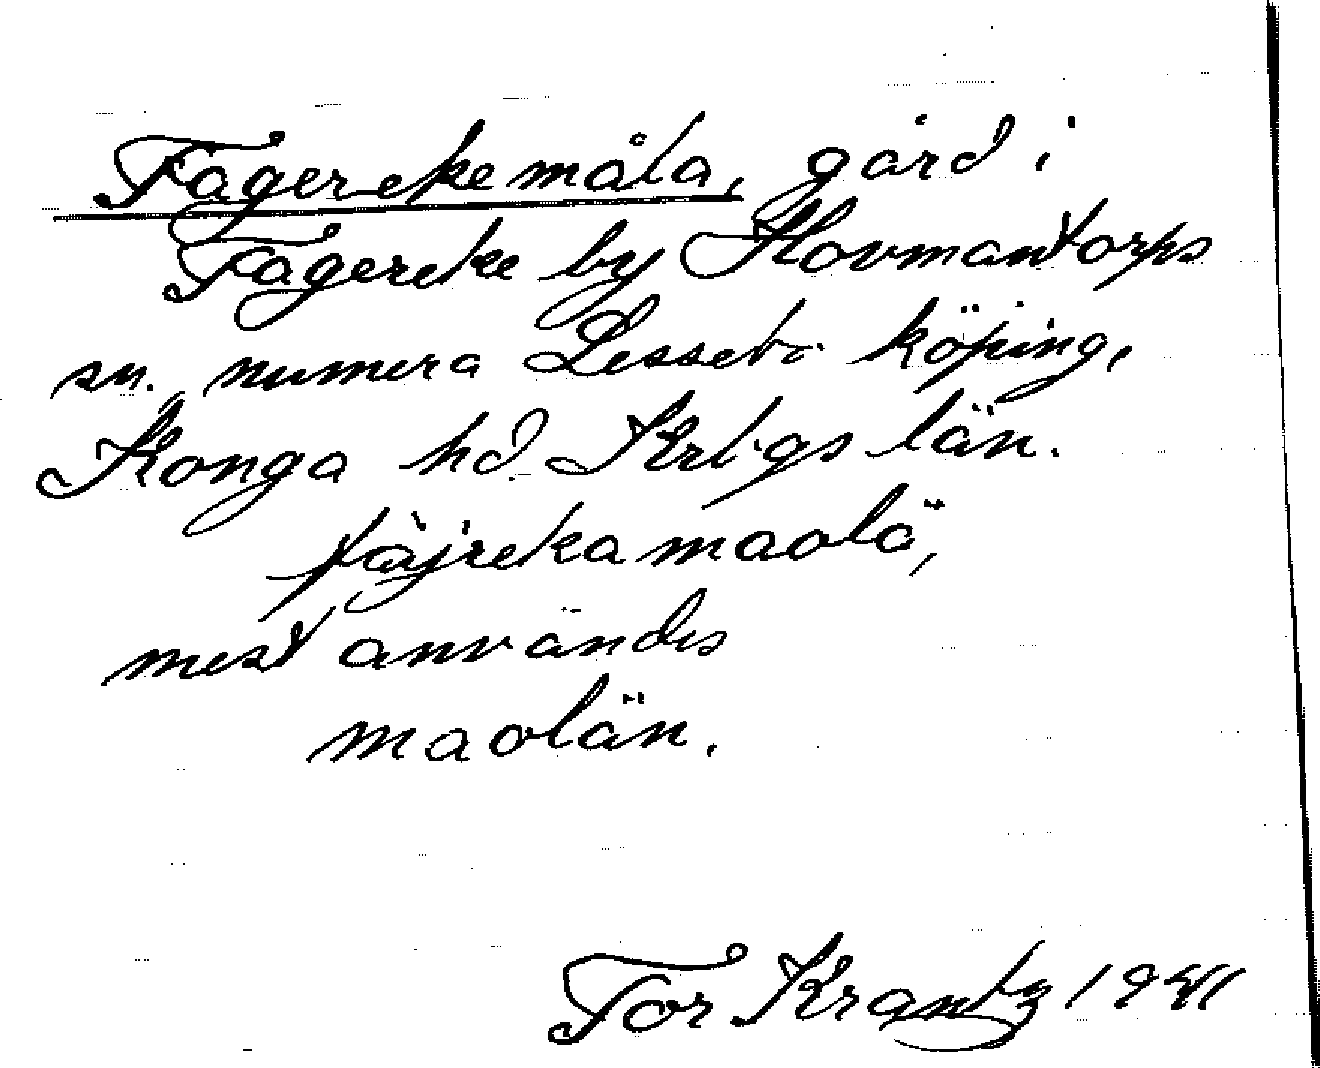 Fagerekemåla, gård i
Fagereke by Hovmantorps
sn. numera Lessebo köping,
Konga hd. Krbgs län.
fàjrekamaolä,
mest användes
maolän.
Tor Krantz 1941